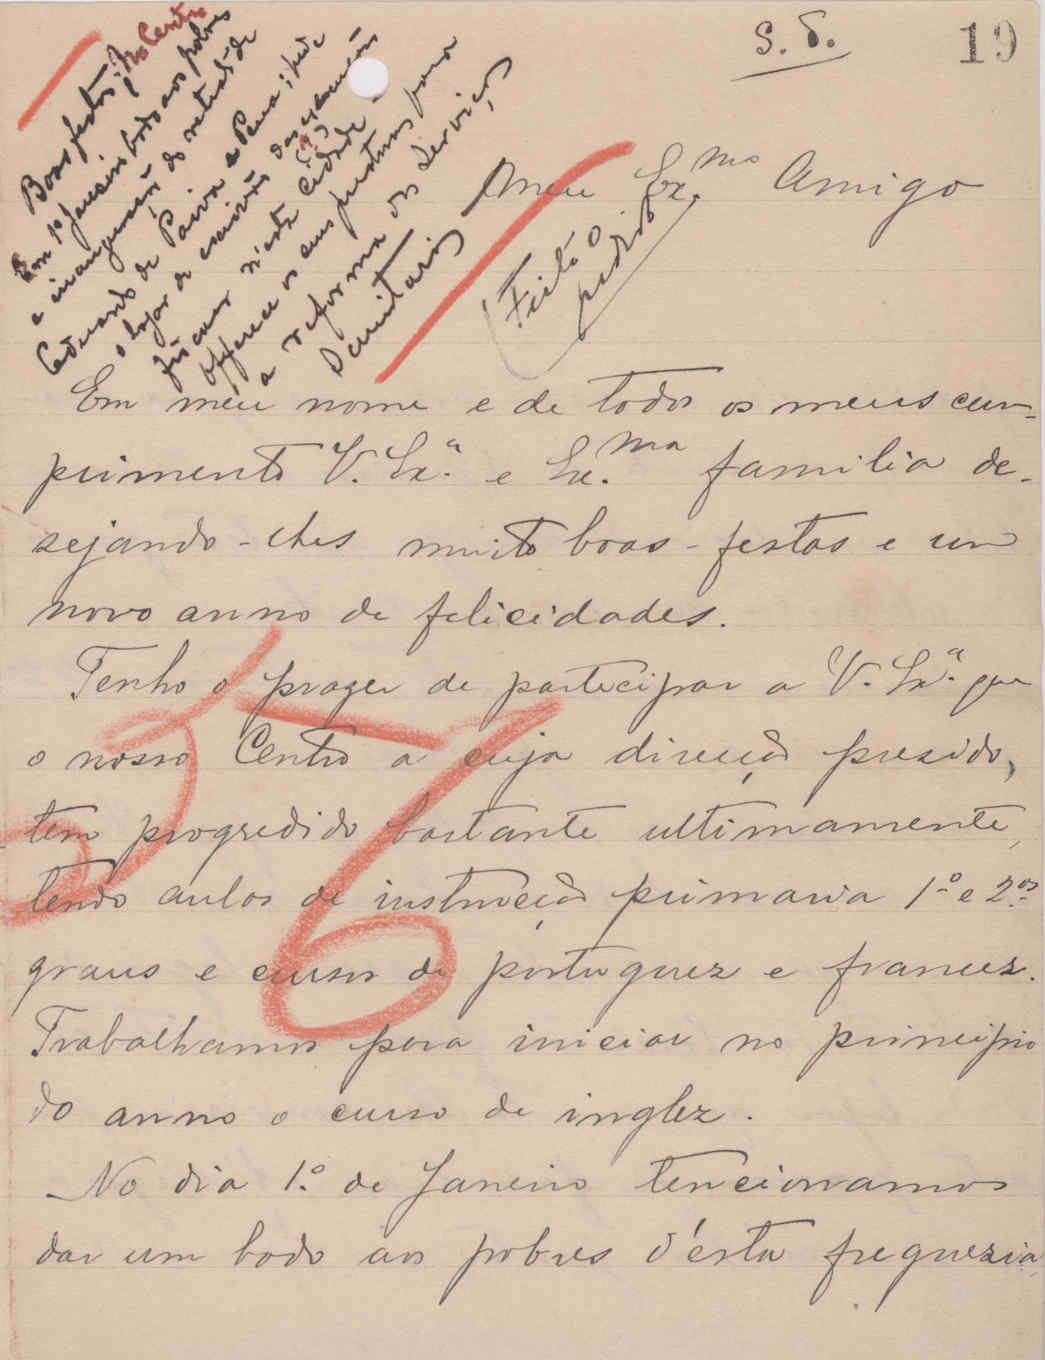 S. d.
19
Boas festas; No Centro
Em 1º Janeiro bodo aos pobres
e inauguração do retrato de
Eduardo de Paiva e Pena;
o logar de escrivão das execuções
fiscaes n'esta cidade
offerece os seus prestimos para
a reforma dos Serviços
Sanitarios
Meu Ex.mo Amigo
(Feito o
pedido
Em meu nome e de todos os meus cum-
primento V. Ex.ª e Ex.ma familia de-
sejando-lhes muito boas-festas e um
novo anno de felicidades.
Tenho o prazer de participar a V. Ex.ª que
o nosso Centro a cuja direcção presido,
tem progredido bastante ultimamente,
tendo aulas de instrucção primaria 1º e 2.os
graus e curso de portuguez e francez.
Trabalhamos para iniciar no principio
do anno o curso de inglez.
No dia 1.º de Janeiro tencionamos
dar um bodo aos pobres d'esta freguezia
376